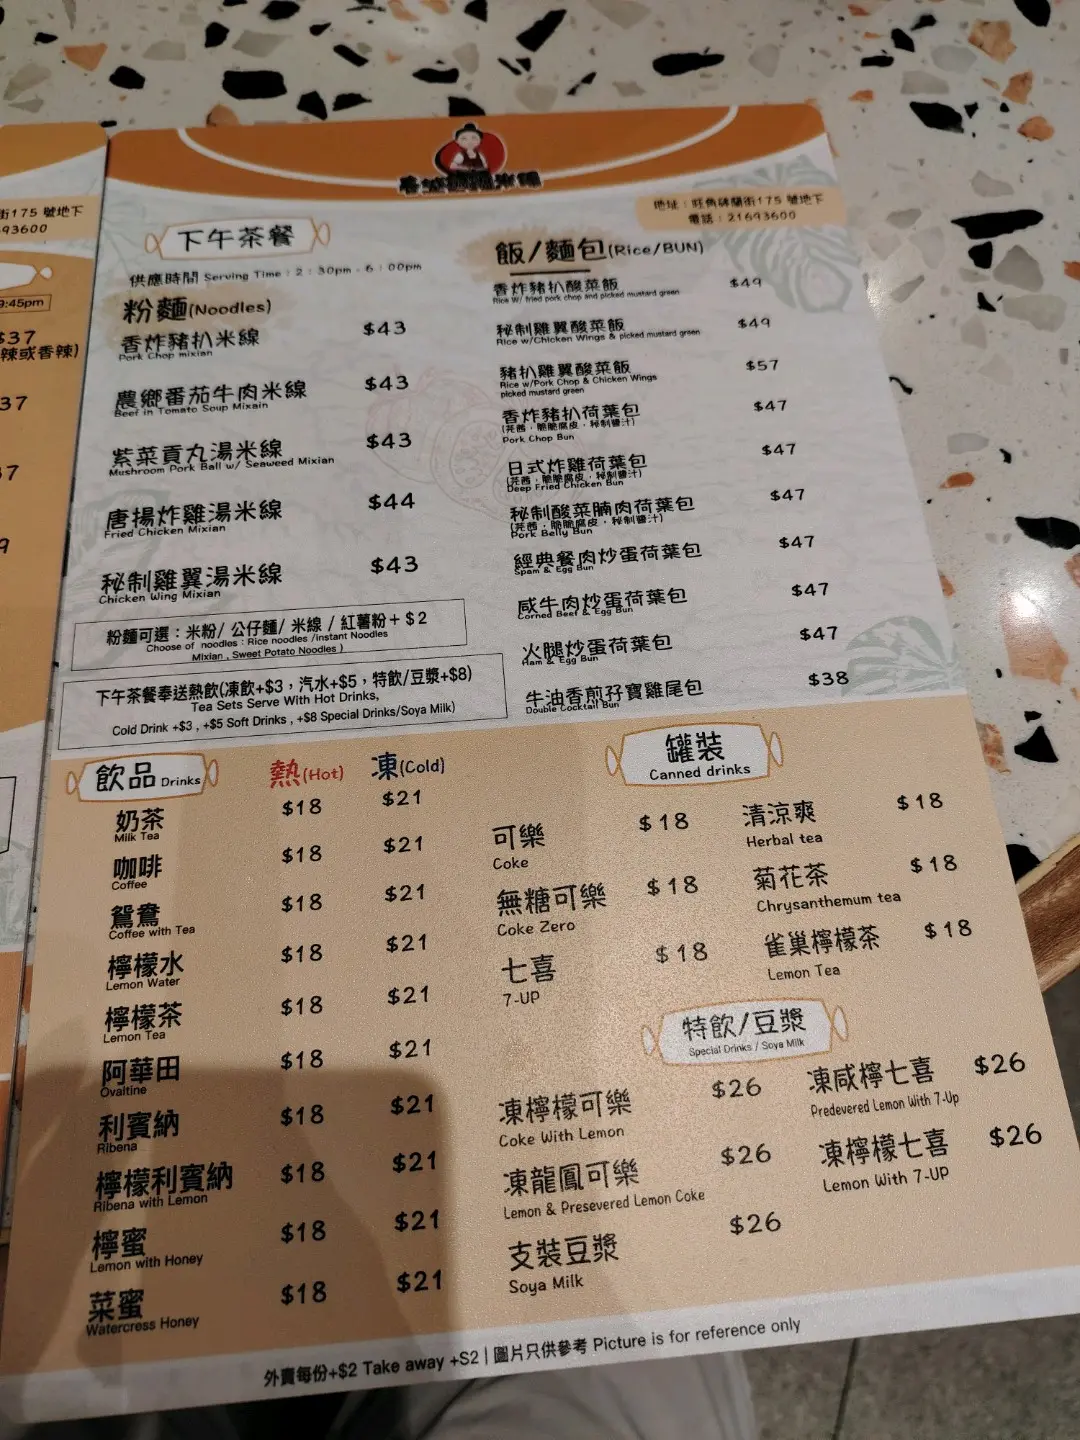 街175 號地下
93600
9:45pm
$37
辣或香辣)
37
37
9
地址：旺角砵蘭街175 號地下
電話：21693600
下午茶餐
供應時間 Serving Time : 2 : 30pm - 6 : 00pm
粉麵(Noodles)
香炸豬扒米線 $43
Pork Chop mixian
農鄉番茄牛肉米線 $43
Beef in Tomato Soup Mixain
紫菜貢丸湯米線 $43
Mushroom Pork Ball w/ Seaweed Mixian
唐揚炸雞湯米線 $44
Fried Chicken Mixian
秘制雞翼湯米線 $43
Chicken Wing Mixian
粉麵可選：米粉/ 公仔麵/ 米線 / 紅薯粉＋＄2
Choose of noodles : Rice noodles /instant Noodles
Mixian , Sweet Potato Noodles )
下午茶餐奉送熱飲(凍飲+$3，汽水+$5，特飲/豆漿+$8)
Tea Sets Serve With Hot Drinks,
Cold Drink +$3 , +$5 Soft Drinks , +$8 Special Drinks/Soya Milk)
飯/麵包(Rice/BUN)
香炸豬扒酸菜飯 $49
Rice W/ fried pork chop and picked mustard green
秘制雞翼酸菜飯 $49
Rice w/Chicken Wings & picked mustard green
豬扒雞翼酸菜飯 $57
Rice w/Pork Chop & Chicken Wings
picked mustard green
香炸豬扒荷葉包 $47
(芫茜，脆脆腐皮，秘制醬汁)
Pork Chop Bun
日式炸雞荷葉包 $47
(芫茜，脆脆腐皮，秘制醬汁)
Deep Fried Chicken Bun
秘制酸菜腩肉荷葉包 $47
(芫茜，脆脆腐皮，秘制醬汁)
Pork Belly Bun
經典餐肉炒蛋荷葉包 $47
Spam & Egg Bun
咸牛肉炒蛋荷葉包 $47
Corned Beef & Egg Bun
火腿炒蛋荷葉包 $47
Ham & Egg Bun
牛油香煎孖寶雞尾包 $38
Double Cocktail Bun
飲品 Drinks 熱(Hot) 凍(Cold)
奶茶 $18 $21
Milk Tea
咖啡 $18 $21
Coffee
鴛鴦 $18 $21
Coffee with Tea
檸檬水 $18 $21
Lemon Water
檸檬茶 $18 $21
Lemon Tea
阿華田 $18 $21
Ovaltine
利賓納 $18 $21
Ribena
檸檬利賓納 $18 $21
Ribena with Lemon
檸蜜 $18 $21
Lemon with Honey
菜蜜 $18 $21
Watercress Honey
罐裝
Canned drinks
可樂 $18
Coke
無糖可樂 $18
Coke Zero
七喜 $18
7-UP
清涼爽 $18
Herbal tea
菊花茶 $18
Chrysanthemum tea
雀巢檸檬茶 $18
Lemon Tea
特飲/豆漿
Special Drinks / Soya Milk
凍檸檬可樂 $26
Coke With Lemon
凍龍鳳可樂 $26
Lemon & Presevered Lemon Coke
支裝豆漿 $26
Soya Milk
凍咸檸七喜 $26
Predevered Lemon With 7-Up
凍檸檬七喜 $26
Lemon With 7-UP
外賣每份+$2 Take away +S2 | 圖片只供參考 Picture is for reference only